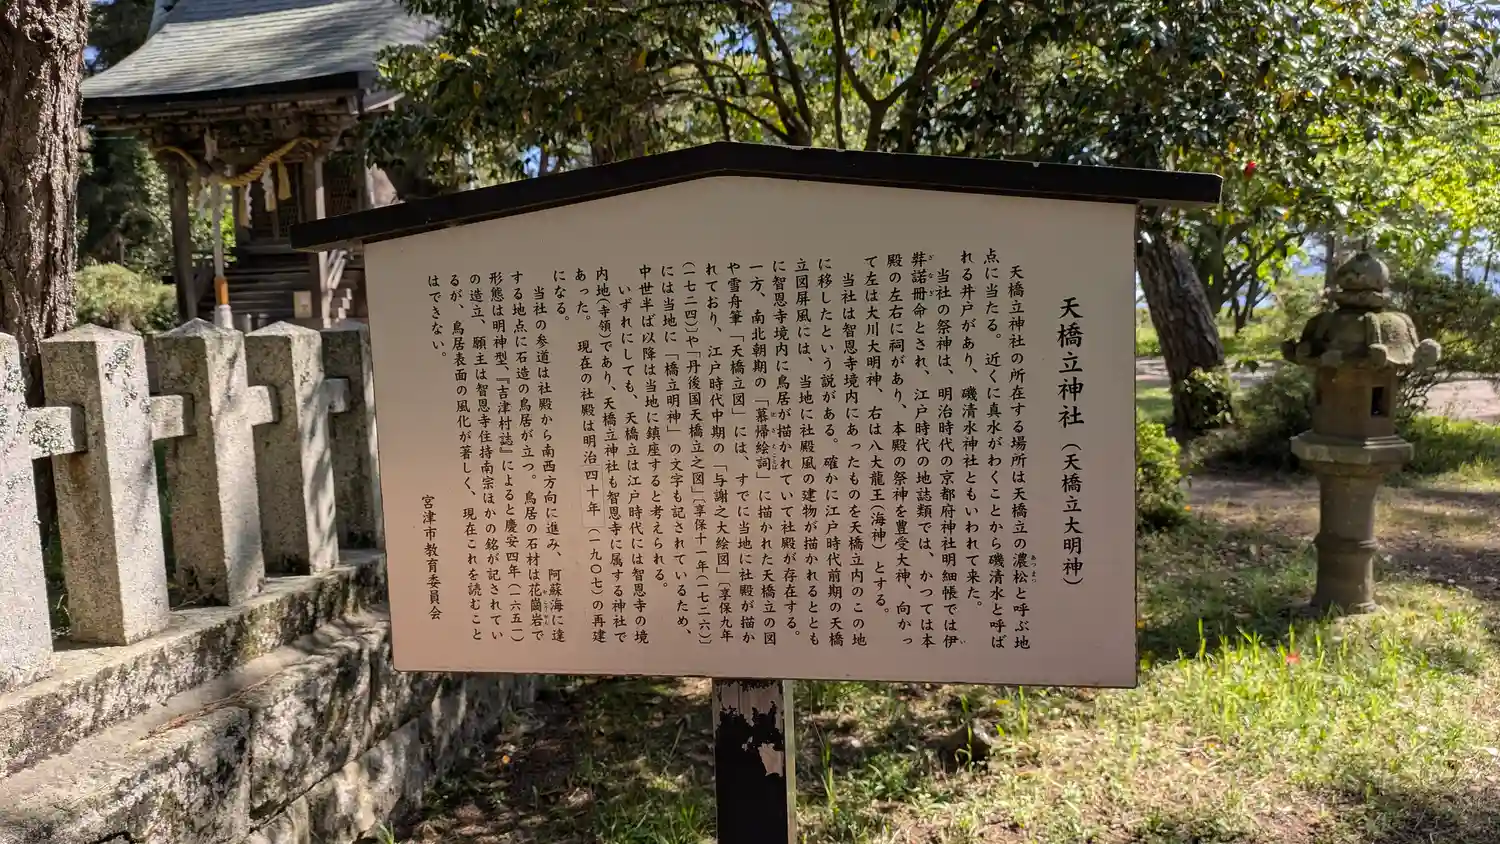 天橋立神社（天橋立大明神）
天橋立神社の所在する場所は天橋立の濃松と呼ぶ地
点に当たる。近くに真水がわくことから磯清水と呼ば
れる井戸があり、磯清水神社ともいわれて来た。
当社の祭神は、明治時代の京都府神社明細帳では伊
弉諾冊命とされ、江戸時代の地誌類では、かつては本
殿の左右に祠があり、本殿の祭神を豊受大神、向かっ
て左は大川大明神、右は八大龍王（海神）とする。
当社は智恩寺境内にあったものを天橋立内のこの地
に移したという説がある。確かに江戸時代前期の天橋
立図屏風には、当地に社殿風の建物が描かれるととも
に智恩寺境内に鳥居が描かれていて社殿が存在する。
一方、南北朝期の「慕帰絵詞」に描かれた天橋立の図
や雪舟筆「天橋立図」には、すでに当地に社殿が描か
れており、江戸時代中期の「与謝之大絵図」〔享保九年
（一七二四）〕や「丹後国天橋立之図」〔享保十一年（一七二六）〕
には当地に「橋立明神」の文字も記されているため、
中世半ば以降は当地に鎮座すると考えられる。
いずれにしても、天橋立は江戸時代には智恩寺の境
内地（寺領）であり、天橋立神社も智恩寺に属する神社で
あった。現在の社殿は明治四十年（一九〇七）の再建
になる。
当社の参道は社殿から南西方向に進み、阿蘇海に達
する地点に石造の鳥居が立つ。鳥居の石材は花崗岩で
形態は明神型、『吉津村誌』によると慶安四年（一六五一）
の造立、願主は智恩寺住持南宗ほかの銘が記されてい
るが、鳥居表面の風化が著しく、現在これを読むこと
はできない。
宮津市教育委員会